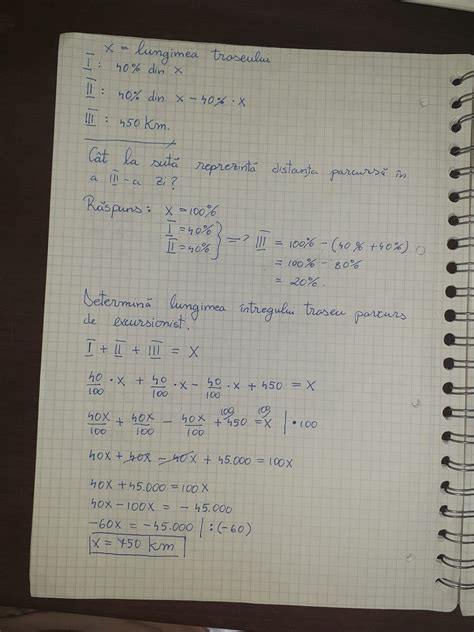 x = lungimea traseului
I : 40% din x
II : 40% din x - 40% · x
III : 450 km.
Cât la sută reprezintă distanța parcursă în
a III-a zi?
Răspuns : x = 100%
I = 40%
II = 40%
=> III = 100% - (40% + 40%)
= 100% - 80%
= 20%.
Determină lungimea întregului traseu parcurs
de excursionist.
I + II + III = x
40/100 · x + 40/100 · x - 40/100 · x + 450 = x
40x/100 + 40x/100 - 40x/100 + 100) 450 = 100) x | · 100
40x + 40x - 40x + 45.000 = 100x
40x + 45.000 = 100x
40x - 100x = - 45.000
-60x = -45.000 | : (-60)
x = 750 km